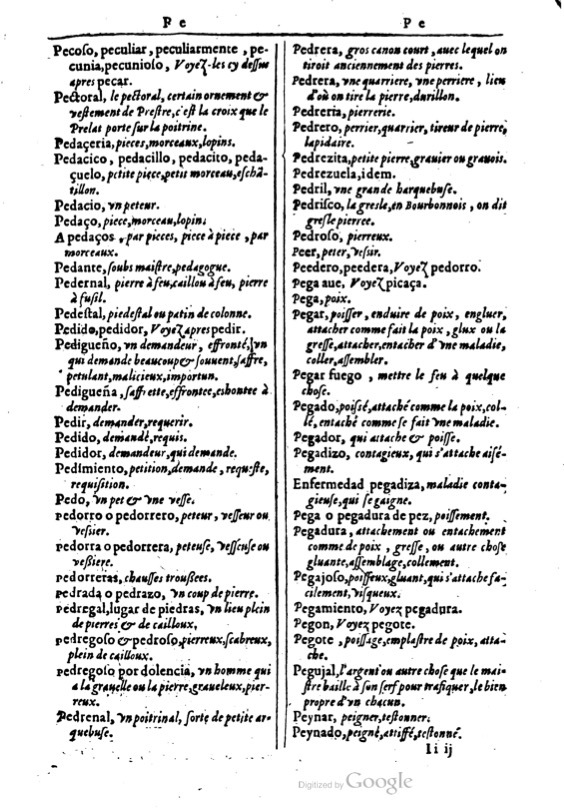 P e
Pecoſo, peculiar, peculiarmente, pe-
cunia, pecunioſo, Voyez-les cy deſſus
apres pecar.
Pectoral, le pectoral, certain ornement &
veſtement de Preſtre, c'eſt la croix que le
Prelat porte ſur la poitrine.
Pedaçeria, pieces, morceaux, lopins.
Pedacico, pedacillo, pedacito, peda-
çuelo, petite piece, petit morceau, eſchã-
tillon.
Pedacio, vn peteur.
Pedaço, piece, morceau, lopin.
A pedaços, par pieces, piece à piece, par
morceaux.
Pedante, ſoubs maiſtre, pedagogue.
Pedernal, pierre à feu, caillou à feu, pierre
à fuſil.
Pedeſtal, piedeſtal ou patin de colonne.
Pedido, pedidor, Voyez apres pedir.
Pedigueño, vn demandeur, effronté, vn
qui demande beaucoup & ſouuent, ſaffre,
petulant, malicieux, importun.
Pedigueña, ſaffrette, effrontee, eshontee à
demander.
Pedir, demander, requerir.
Pedido, demandé, requis.
Pedidor, demandeur, qui demande.
Pedimiento, petition, demande, requeſte,
requiſition.
Pedo, vn pet & vne veſſe.
pedorro o pedorrero, peteur, veſſeur ou
veſſier.
pedorra o pedorrera, peteuse, veſſeuse ou
veſſiere.
pedorreras, chauſſes trouſſees.
pedrada o pedrazo, vn coup de pierre.
pedregal, lugar de piedras, vn lieu plein
de pierres & de cailloux.
pedregoſo & pedroſo, pierreux, ſcabreux,
plein de cailloux.
pedregoſo por dolencia, vn homme qui
a la grauelle ou la pierre, graueleux, pier-
reux.
Pedrenal, vn poitrinal, ſorte de petite ar-
quebuſe.
P e
Pedrera, gros canon court, auec lequel on
tiroit anciennement des pierres.
Pedrera, vne quarriere, vne perriere, lieu
d'où on tire la pierre, durillon.
Pedreria, pierrerie.
Pedrero, perrier, quarrier, tireur de pierre,
lapidaire.
Pedrezita, petite pierre, grauier ou grauois.
Pedrezuela, idem.
Pedril, vne grande harquebuſe.
Pedriſco, la greſle, en Bourbonnois, on dit
greſle pierree.
Pedroſo, pierreux.
Peer, peter, veſſir.
Peedero, peedera, Voyez pedorro.
Pega aue, Voyez picaça.
Pega, poix.
Pegar, poiſſer, enduire de poix, engluer,
attacher comme fait la poix, glux ou la
greſſe, attacher, entacher d'vne maladie,
coller, aſſembler.
Pegar fuego, mettre le feu à quelque
choſe.
Pegado, poiſſé, attaché comme la poix, col-
lé, entaché comme ſe fait vne maladie.
Pegador, qui attache & poiſſe.
Pegadizo, contagieux, qui s'attache aiſé-
ment.
Enfermedad pegadiza, maladie conta-
gieuſe, qui ſe gaigne.
Pega o pegadura de pez, poiſſement.
Pegadura, attachement ou entachement
comme de poix, greſſe, ou autre choſe
gluante, aſſemblage, collement.
Pegajoſo, poiſſeux, gluant, qui s'attache fa-
cilement, viſqueux.
Pegamiento, Voyez pegadura.
Pegon, Voyez pegote.
Pegote, poiſſage, emplaſtre de poix, atta-
che.
Pegujal, l'argent ou autre choſe que le mai-
ſtre baille à ſon ſerf pour trafiquer, le bien
propre d'vn chacun.
Peynar, peigner, teſtonner.
Peynado, peigné, attiffé, teſtonné.
Ii ij
Digitized by Google